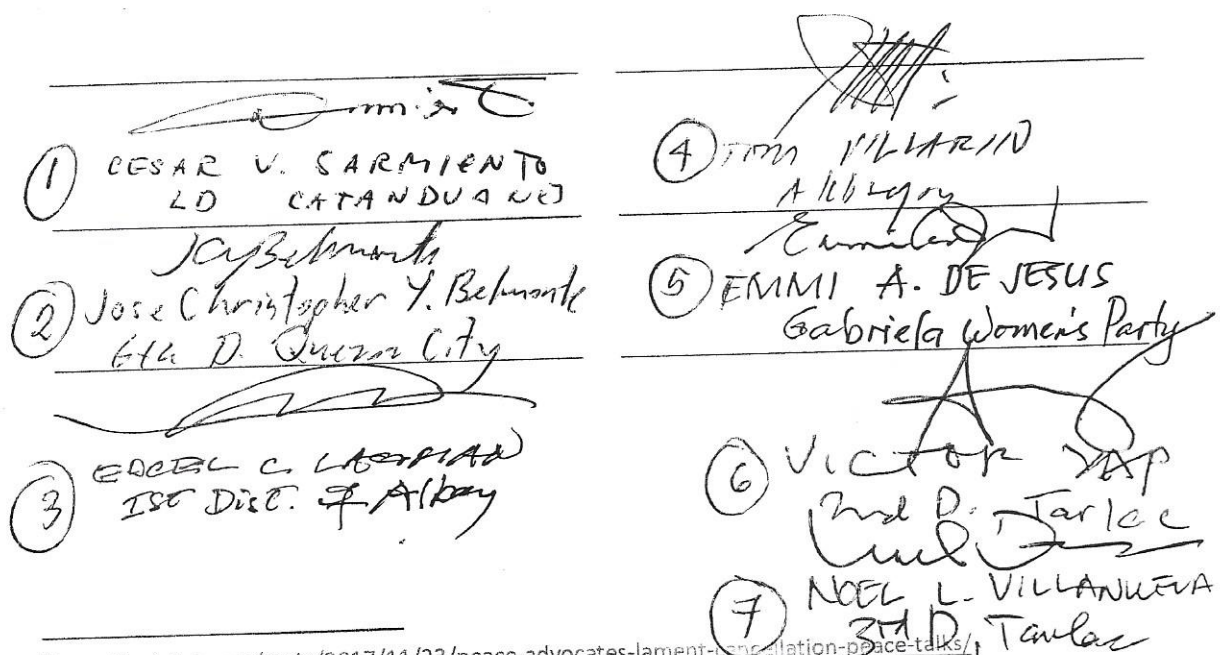 1 CESAR V. SARMIENTO
LD CATANDUANES
2 Jose Christopher Y. Belmonte
6th D. Quezon City
3 EDCEL C. LAGMAN
1ST DIST. of Albay
4 TOM VILLARIN
Akbayan
5 EMMI A. DE JESUS
Gabriela Women's Party
6 VICTOR YAP
2nd D. Tarlac
7 NOEL L. VILLANUEVA
3rd D. Tarlac
2017/11/23/peace-advocates-lament-cancellation-peace-talks/